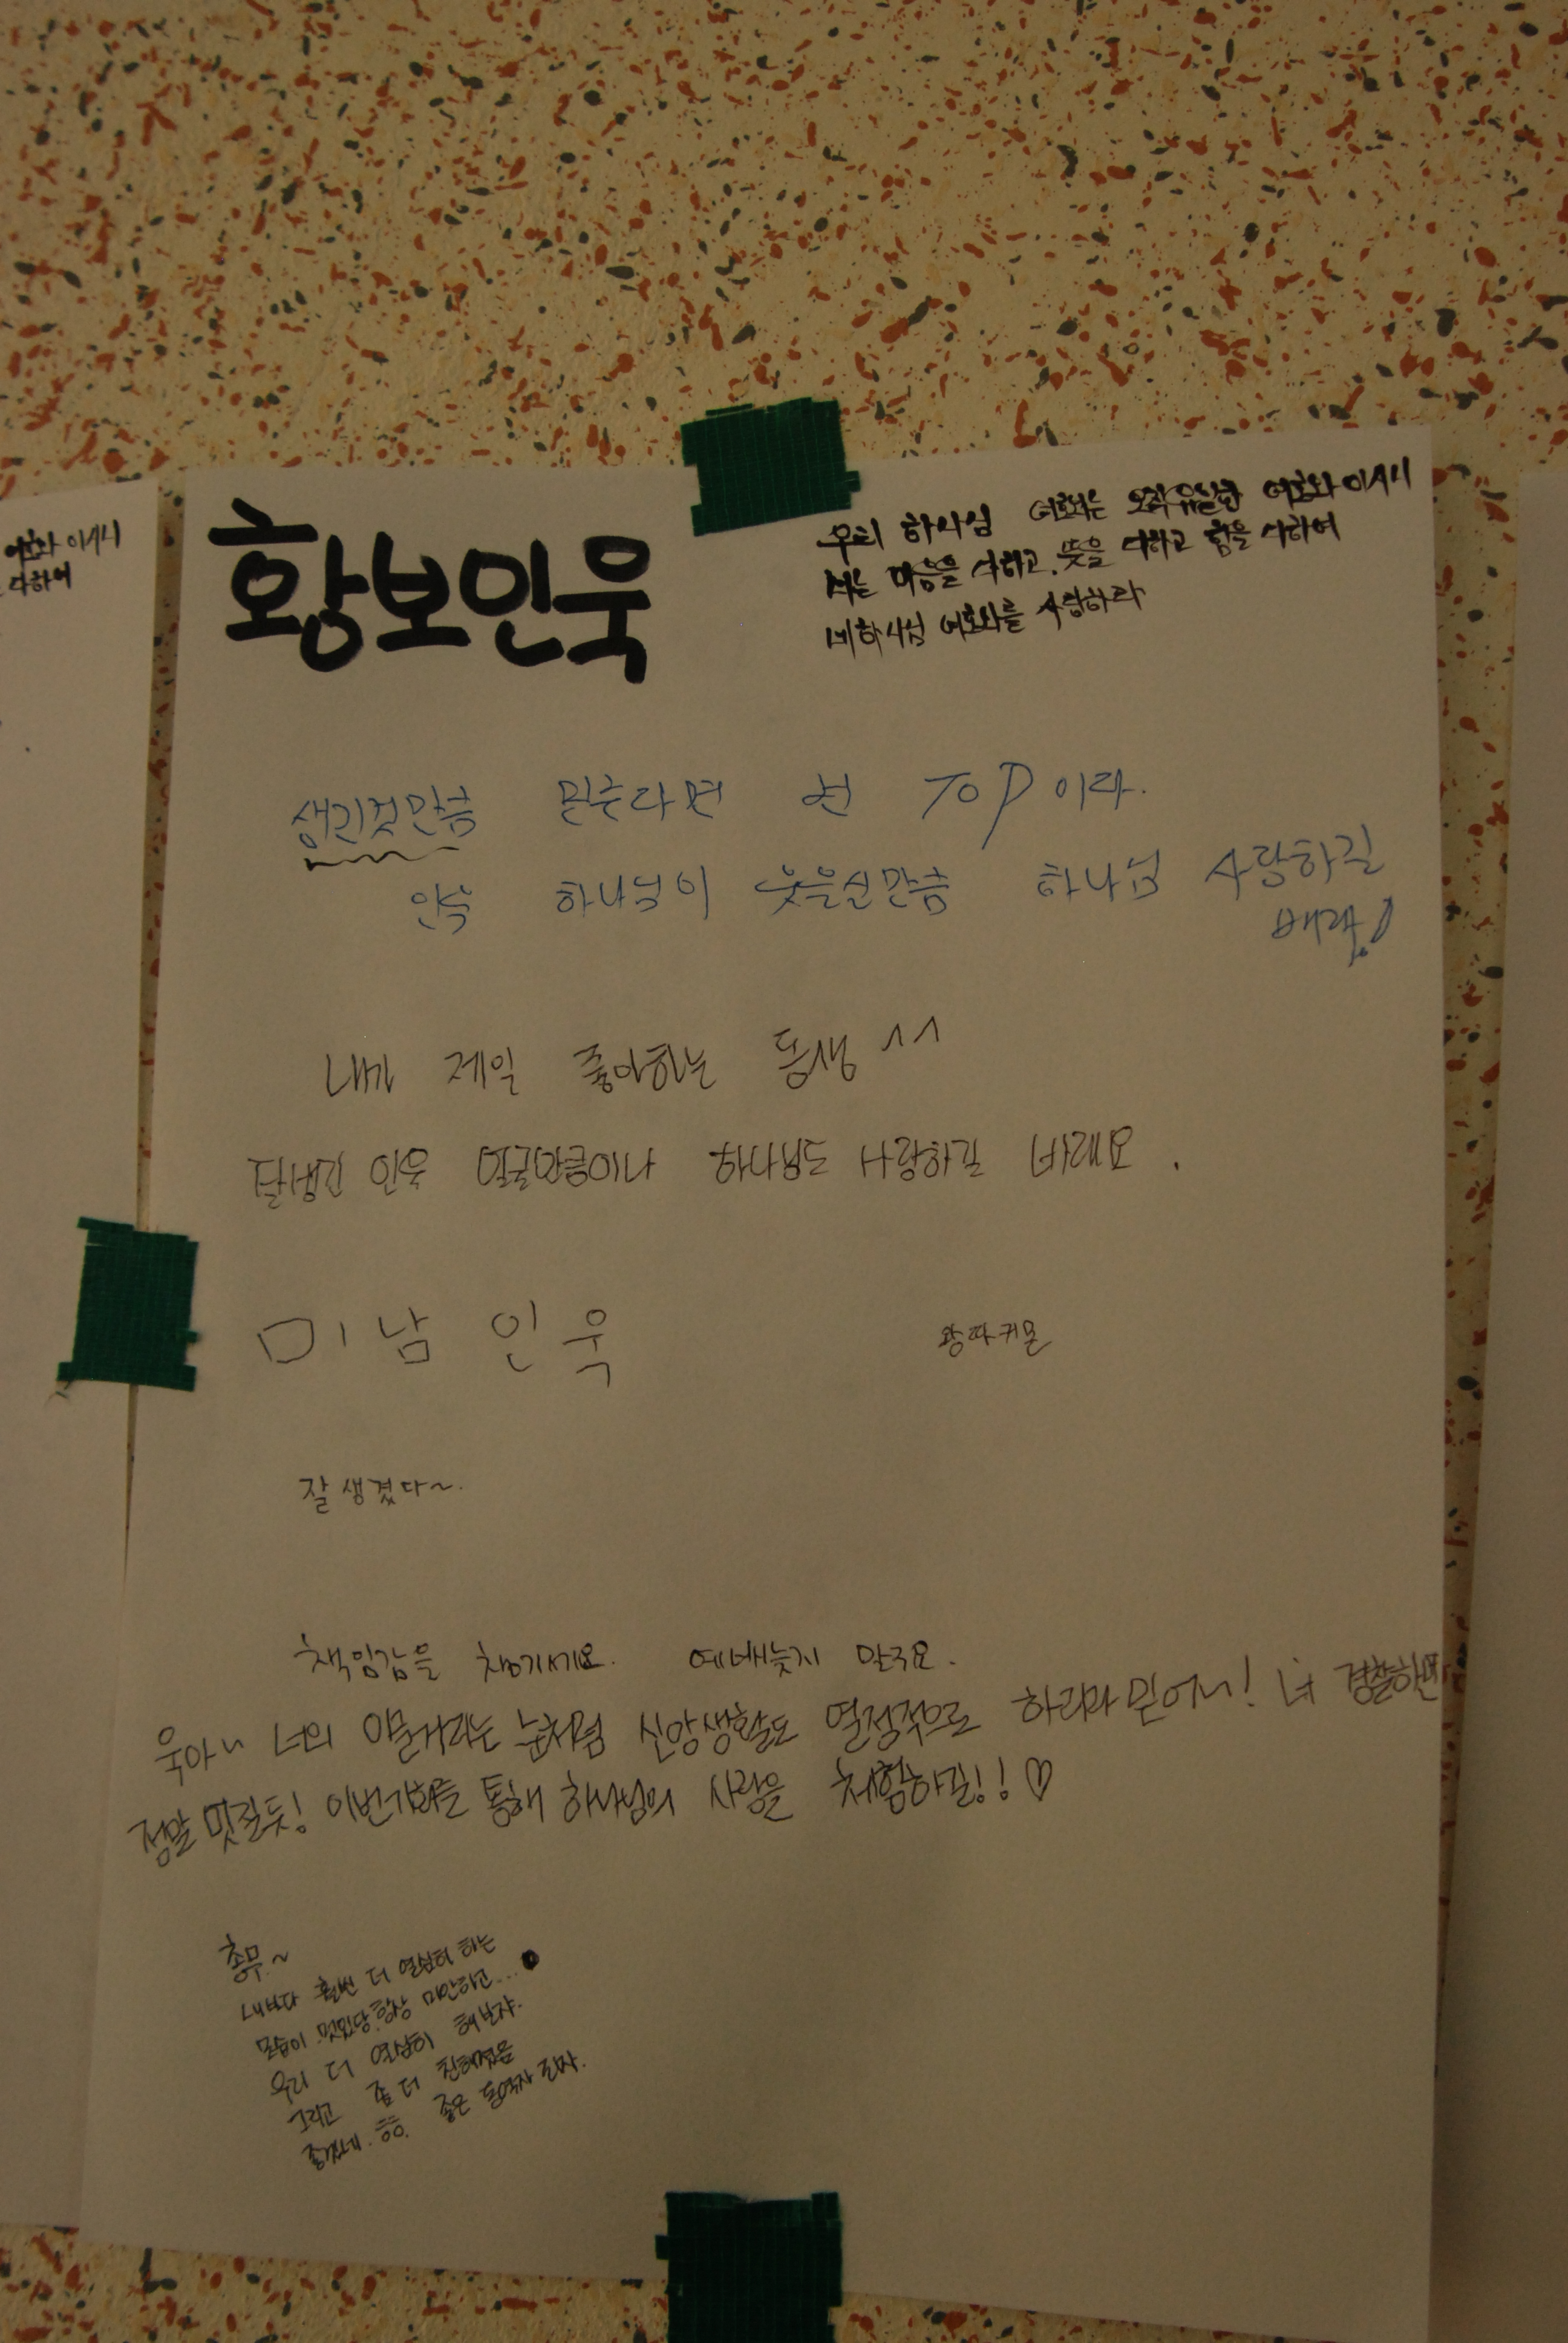 여호와 이시니
다하여
황보인욱
우리 하나님 여호와는 오직 유일한 여호와이시니
너는 마음을 다하고, 뜻을 다하고 힘을 다하여
네 하나님 여호와를 사랑하라
생긴것만큼 믿는다면 넌 TOP이다.
인욱 하나님이 웃으신만큼 하나님 사랑하길
바래!
내가 제일 좋아하는 동생 ^^
잘생긴 인욱 얼굴만큼이나 하나님도 사랑하길 바래요.
미남 인욱
왕따귀문
잘생겼다~.
책임감을 챙기세요. 예배늦지 말구요.
욱아~ 너의 이글거리는 눈처럼 신앙생활도 열정적으로 하리라 믿어~! 너 경찰하면
정말 멋질듯! 이번기회를 통해 하나님의 사랑을 체험하길!! ♡
총무~
내보다 훨씬 더 열심히 하는
모습이 멋있당. 항상 미안하고...
우리 더 열심히 해보자.
그리고 좀 더 친해졌음
좋겠네. ㅎㅎ. 좋은 동역자 되자.